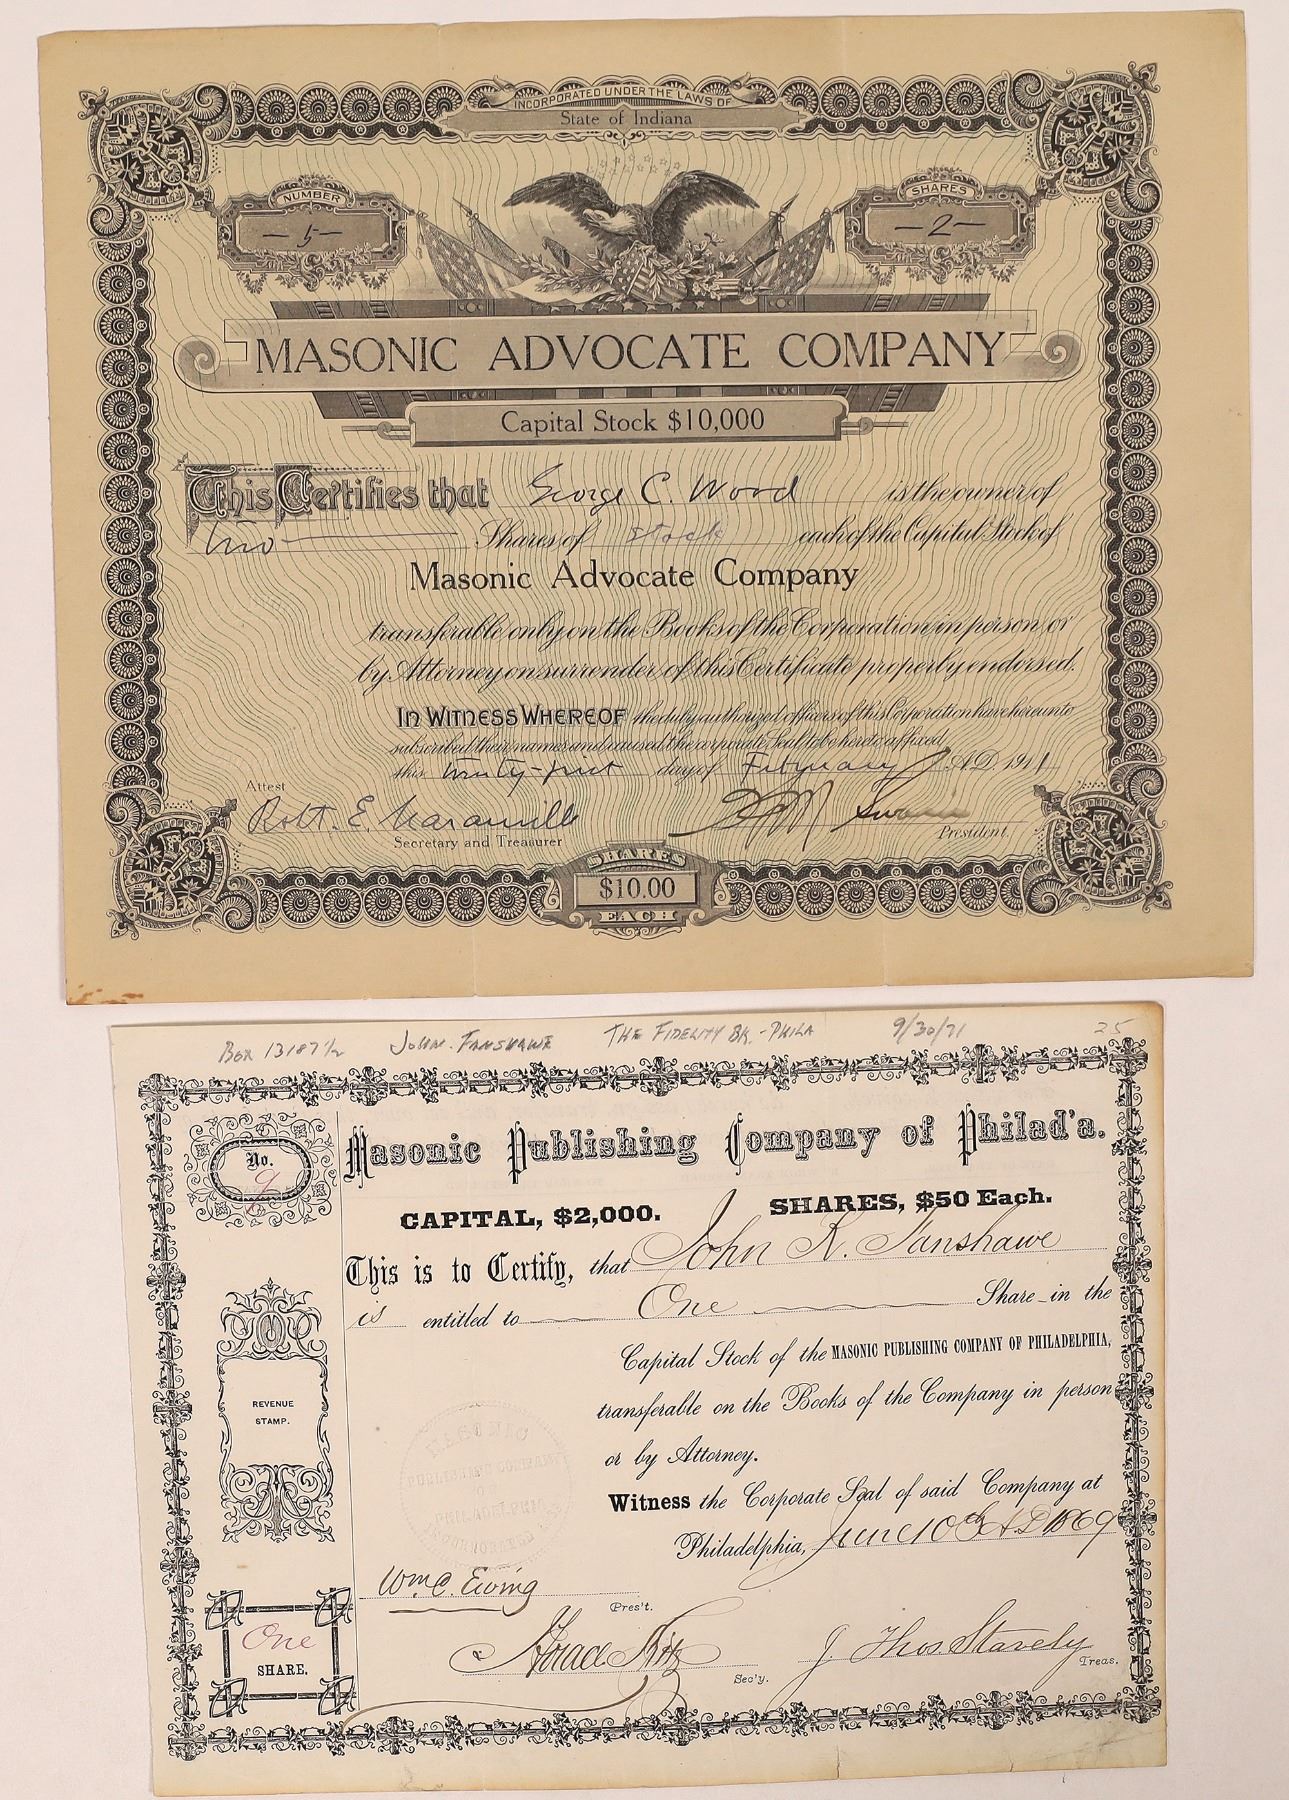 INCORPORATED UNDER THE LAWS OF
State of Indiana
NUMBER
—5—
SHARES
—2—
MASONIC ADVOCATE COMPANY
Capital Stock $10,000
This Certifies that George C. Wood is the owner of
Two Shares of stock each of the Capital Stock of
Masonic Advocate Company
transferable only on the Books of the Corporation in person or
by Attorney on surrender of this Certificate properly endorsed.
IN WITNESS WHEREOF the duly authorized officers of this Corporation have hereunto
subscribed their names and caused the corporate Seal to be hereto affixed
this twenty-first day of February A.D. 1911
Attest
Robt. E.
Secretary and Treasurer
President.
SHARES
$10.00
EACH
Box 13187½ JOHN. FANSHAWE THE FIDELITY BK.-PHILA 9/30/71 25
No.
Masonic Publishing Company of Philad'a.
CAPITAL, $2,000. SHARES, $50 Each.
This is to Certify, that John K. Fanshawe
is entitled to One Share in the
Capital Stock of the MASONIC PUBLISHING COMPANY OF PHILADELPHIA,
transferable on the Books of the Company in person
or by Attorney.
Witness the Corporate Seal of said Company at
Philadelphia, June 10th AD 1869
REVENUE
STAMP.
MASONIC
PUBLISHING COMPANY
OF
PHILADELPHIA
Wm. C. Ewing
Pres't.
Horace Fritz
Sec'y.
J. Thos. Stavely
Treas.
One
SHARE.